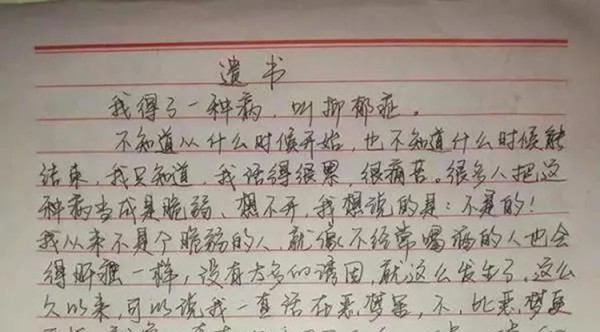 遗书
我得了一种病，叫抑郁症。
不知道从什么时候开始，也不知道什么时候能
结束，我只知道，我活得很累，很痛苦。很多人把这
种病当成是脆弱、想不开，我想说的是：不是的！
我从来不是个脆弱的人，就像不经常喝酒的人也会
得肝癌一样，没有太多的诱因，就这么发生了，这么
久以来，可以说我一直活在恶梦里，不，比恶梦更